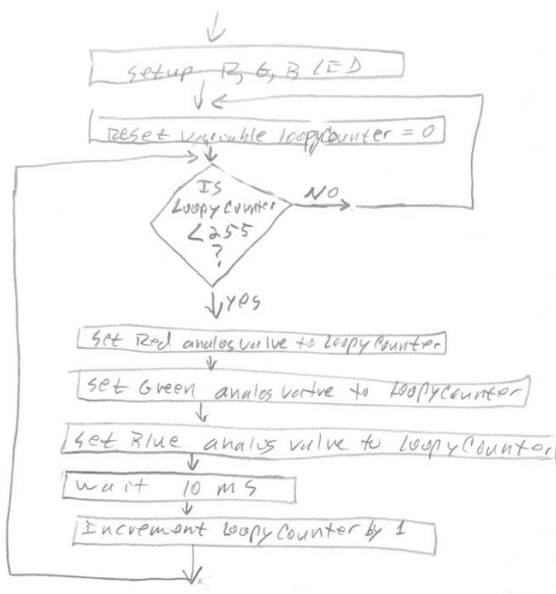 setup R, G, B LED
Reset variable loopyCounter = 0
Is
Loopy Counter
<255
?
NO
yes
set Red analog value to LoopyCounter
set Green analog value to LoopyCounter
set Blue analog value to LoopyCounter
wait 10 ms
Increment LoopyCounter by 1